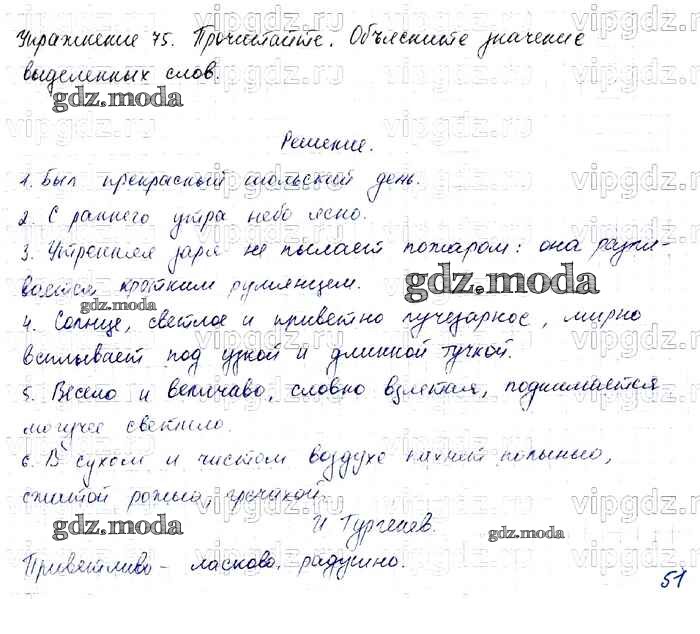 Упражнение 75. Прочитайте. Объясните значение
выделенных слов.
gdz.moda
Решение.
1. Был прекрасный июльский день.
2. С раннего утра небо ясно.
3. Утренняя заря не пылает пожаром: она разли-
вается кротким румянцем.
gdz.moda
gdz.moda
4. Солнце, светлое и приветно лучезарное, мирно
всплывает под узкой и длинной тучкой.
5. Весело и величаво, словно взлетая, поднимается
могучее светило.
6. В сухом и чистом воздухе пахнет полынью,
сжатой рожью, гречихой.
И Тургенев.
gdz.moda
gdz.moda
Приветливо - ласково, радушно.
51